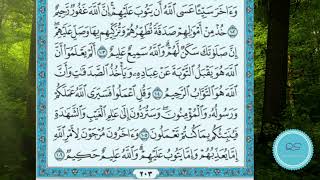 وَءَاخَرَ سَيِّئًا عَسَى ٱللَّهُ أَن يَتُوبَ عَلَيْهِمْ إِنَّ ٱللَّهَ غَفُورٌ رَّحِيمٌ
١٠٢ خُذْ مِنْ أَمْوَٰلِهِمْ صَدَقَةً تُطَهِّرُهُمْ وَتُزَكِّيهِم بِهَا وَصَلِّ عَلَيْهِمْ
إِنَّ صَلَوٰتَكَ سَكَنٌ لَّهُمْ وَٱللَّهُ سَمِيعٌ عَلِيمٌ ١٠٣ أَلَمْ يَعْلَمُوٓا۟ أَنَّ
ٱللَّهَ هُوَ يَقْبَلُ ٱلتَّوْبَةَ عَنْ عِبَادِهِۦ وَيَأْخُذُ ٱلصَّدَقَٰتِ وَأَنَّ
ٱللَّهَ هُوَ ٱلتَّوَّابُ ٱلرَّحِيمُ ١٠٤ وَقُلِ ٱعْمَلُوا۟ فَسَيَرَى ٱللَّهُ عَمَلَكُمْ
وَرَسُولُهُۥ وَٱلْمُؤْمِنُونَ وَسَتُرَدُّونَ إِلَىٰ عَٰلِمِ ٱلْغَيْبِ وَٱلشَّهَٰدَةِ
فَيُنَبِّئُكُم بِمَا كُنتُمْ تَعْمَلُونَ ١٠٥ وَءَاخَرُونَ مُرْجَوْنَ لِأَمْرِ ٱللَّهِ
إِمَّا يُعَذِّبُهُمْ وَإِمَّا يَتُوبُ عَلَيْهِمْ وَٱللَّهُ عَلِيمٌ حَكِيمٌ ١٠٦
٢٠٣